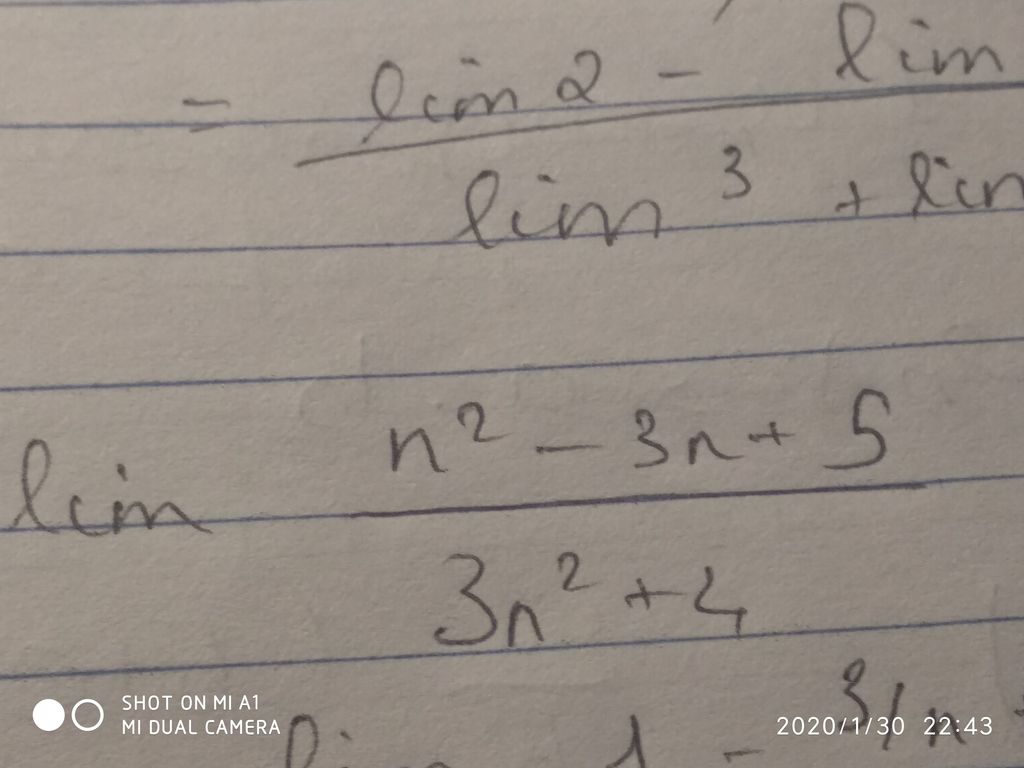 = lim 2 - lim
lim 3 + lim
lim n² - 3n + 5
3n² + 4
lim 1 - 3/n
SHOT ON MI A1
MI DUAL CAMERA
2020/1/30 22:43